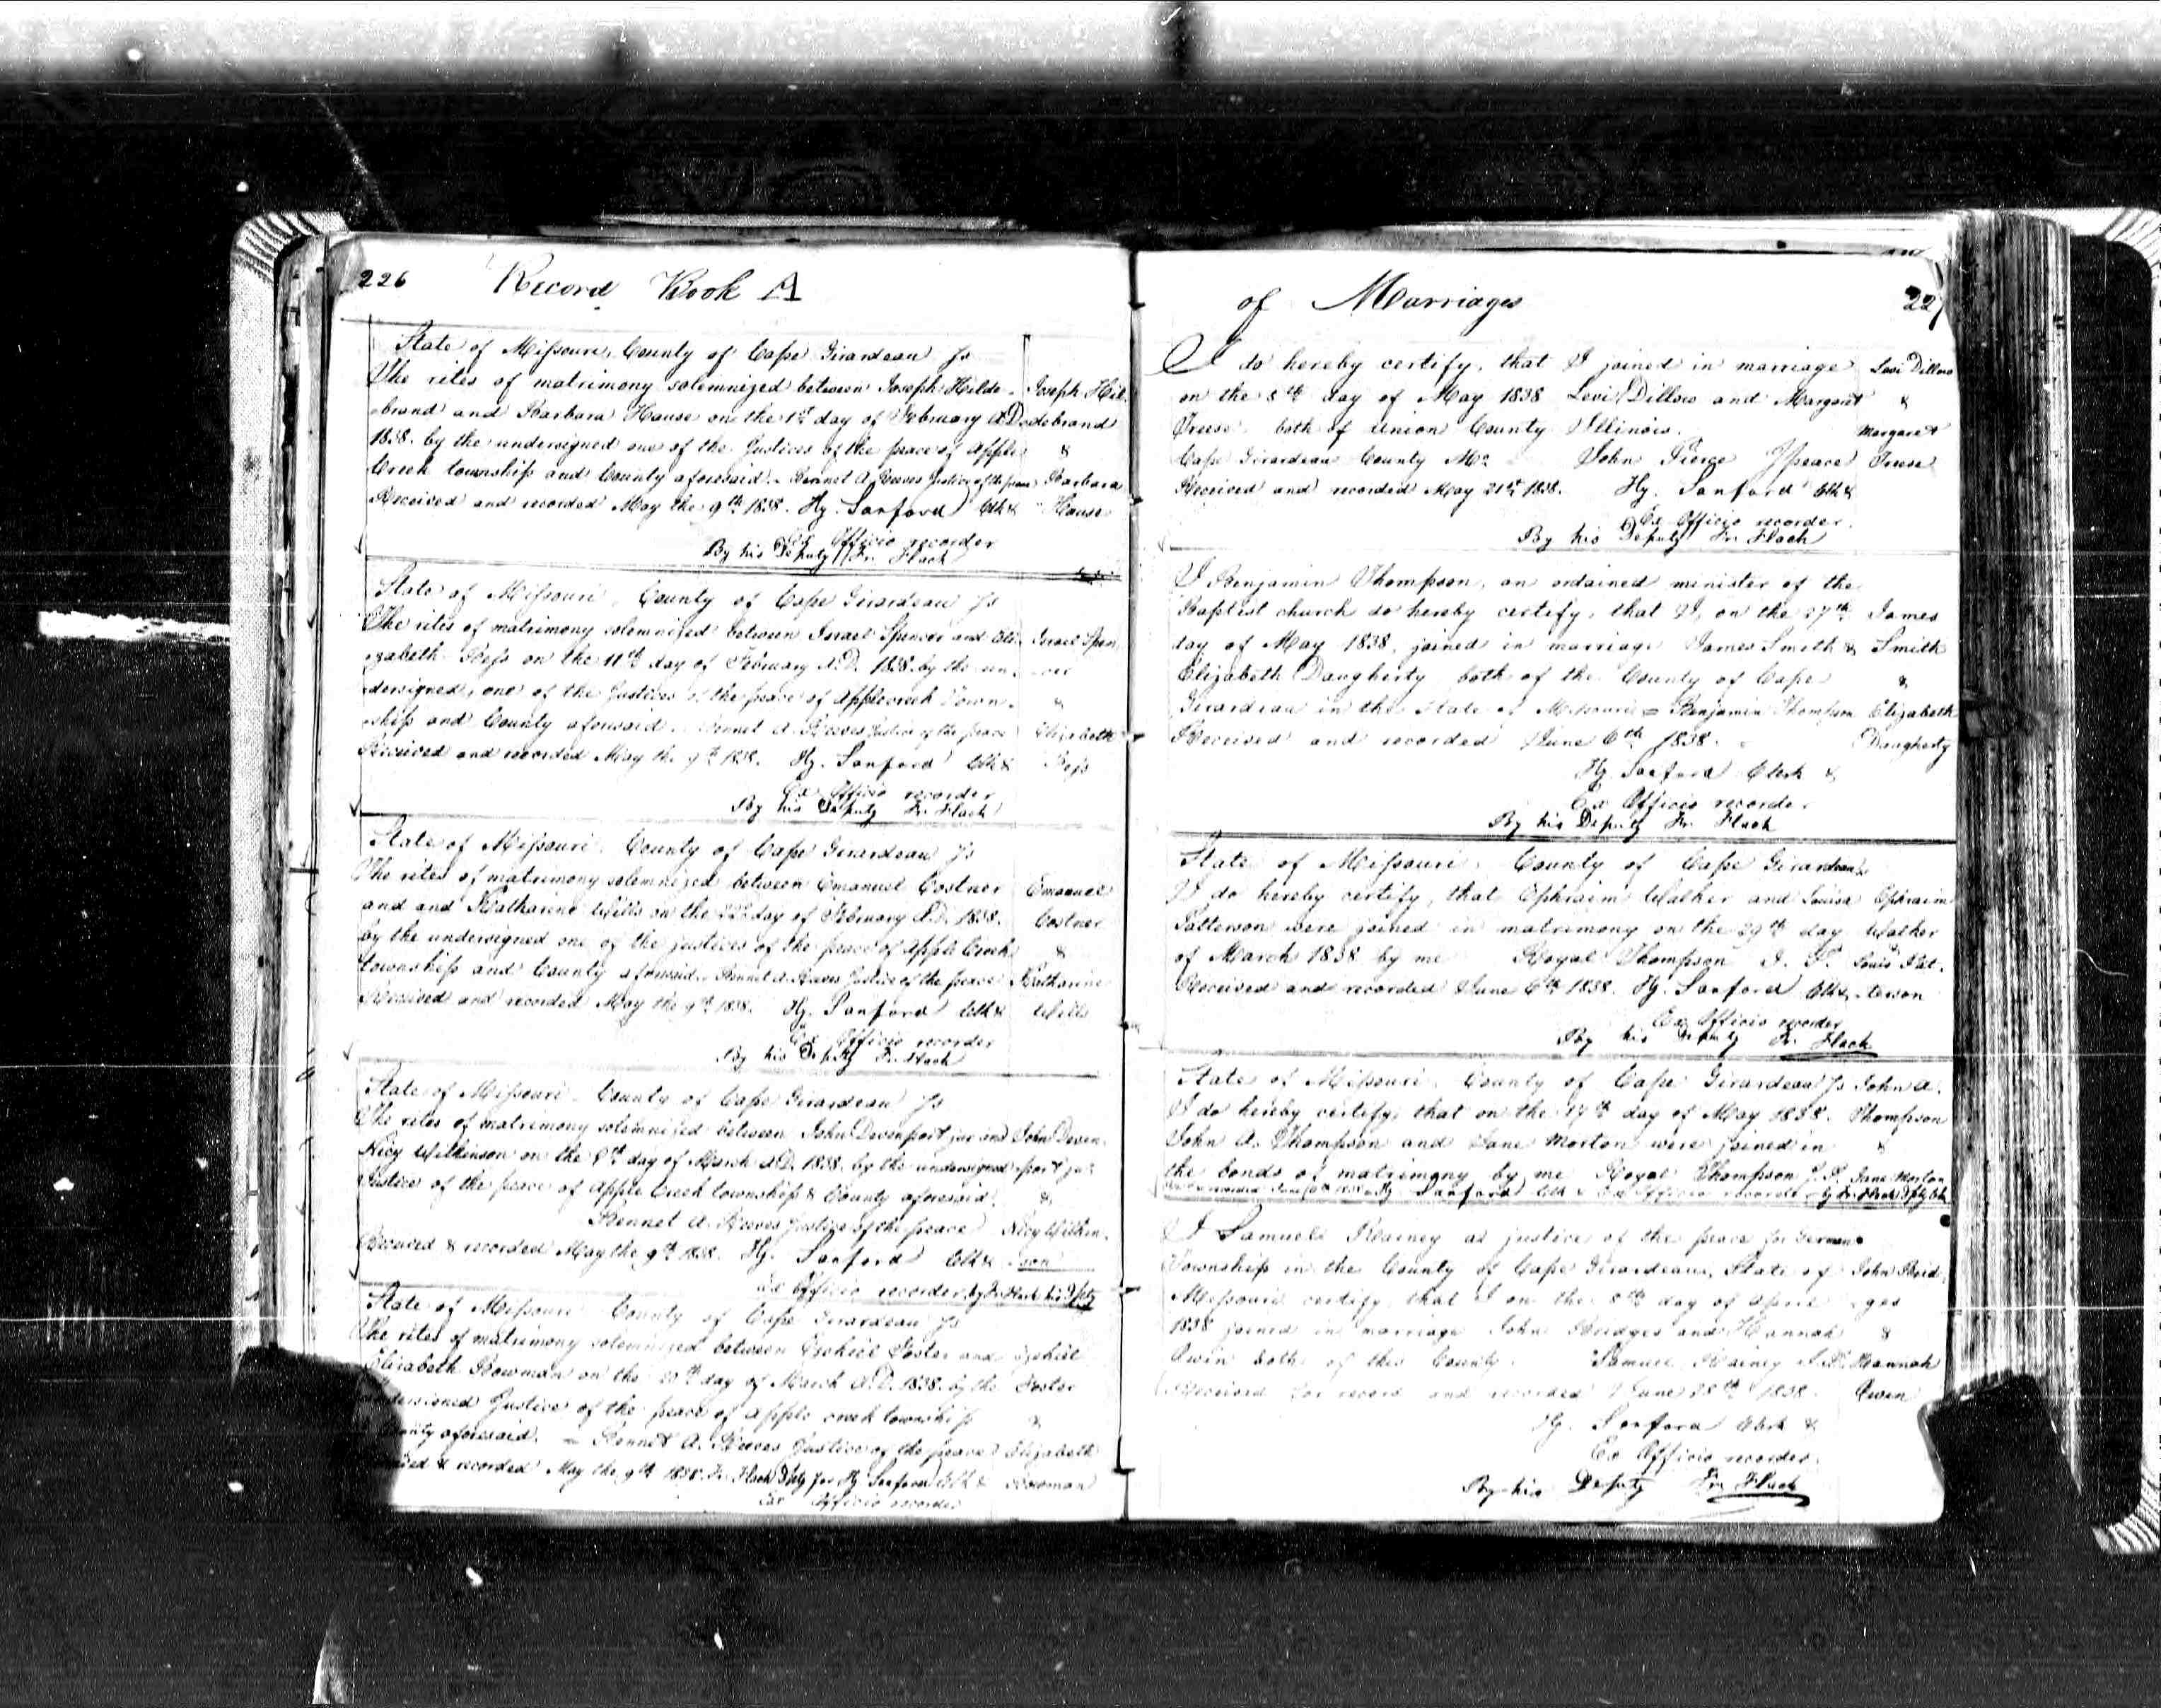 226 Record Book A
State of Missouri, County of Cape Girardeau Ss
The rites of matrimony solemnized between Joseph Hilde-
-brand and Barbara House on the 1st day of February A.D.
1838. by the undersigned one of the Justices of the peace of Apple
Creek township and County aforesaid. - Bennet A. Reeves Justice of the peace
Received and recorded May the 9th 1838. Hy. Sanford Clk &
Ex Officio recorder
By his Deputy Fr. Flach
Joseph Hil-
debrand
&
Barbara
House
State of Missouri, County of Cape Girardeau Ss
The rites of matrimony solemnized between Israel Spencer and Eli-
-zabeth Bess on the 11th day of February A.D. 1838. by the un-
dersigned, one of the Justices of the peace of Applecreek Town-
-ship and County aforesaid. Bennet A. Reeves Justice of the peace
Received and recorded May the 9th 1838. Hy. Sanford Clk &
Ex Officio recorder
By his Deputy Fr. Flach
Israel Spen
-cer
&
Elizabeth
Bess
State of Missouri, County of Cape Girardeau Ss
The rites of matrimony solemnized between Emanuel Costner
and and Katharine Wills on the 22d day of February A.D. 1838.
by the undersigned one of the justices of the peace of Apple Creek
township and County aforesaid. Bennet A. Reeves Justice of the peace
Received and recorded May the 9th 1838. Hy. Sanford Clk &
Ex Officio recorder
By his Deputy Fr. Flach
Emanuel
Costner
&
Katharine
Wills
State of Missouri, County of Cape Girardeau Ss
The rites of matrimony solemnized between John Devenport jur and
Nicy Wilkinson on the 8th day of March A.D. 1838. by the undersigned
Justice of the peace of Apple Creek township & County aforesaid.
Bennet A. Reeves Justice of the peace
Received & recorded May the 9th 1838. Hy. Sanford Clk &
Ex Officio recorder by Fr. Flach his Dpty
John Deven-
port jur
&
Nicy Wilkin-
son
State of Missouri County of Cape Girardeau Ss
The rites of matrimony solemnized between Ezekiel Foster and
Elizabeth Bowman on the day of March A.D. 1838. by the
undersigned Justice of the peace of Apple creek township
County aforesaid. = Bennet A. Reeves Justice of the peace
& recorded May the 9th 1838. Fr. Flach Dpty for Hy. Sanford Clk &
Ex Officio recorder
Ezekiel
Foster
&
Elizabeth
Bowman
of Marriages 227
I do hereby certify, that I joined in marriage
on the 8th day of May 1838 Levi Dillow and Margaret
Treese, both of Union County Illinois.
Cape Girardeau County Mo. John Pierce J peace
Received and recorded May 21st 1838. Hy. Sanford Clk &
Ex Officio recorder
By his Deputy Fr. Flach
Levi Dillow
&
Margaret
Treese
I Benjamin Thompson, an ordained minister of the
Baptist church do hereby certify, that I, on the 27th
day of May 1838, joined in marriage James Smith &
Elizabeth Daugherty both of the County of Cape
Girardeau in the State of Missouri = Benjamin Thompson
Received and recorded June 6th 1838.
Hy. Sanford Clerk &
Ex Officio recorder
By his Deputy Fr. Flach
James
Smith
&
Elizabeth
Daugherty
State of Missouri, County of Cape Girardeau Ss
I do hereby certify, that Ephraim Walker and Louisa
Patterson were joined in matrimony on the 29th day
of March 1838 by me Royal Thompson J. P.
Received and recorded June 6th 1838. Hy. Sanford Clk &
Ex Officio recorder
By his Deputy Fr. Flach
Ephraim
Walker
&
Louis Pat-
-terson
State of Missouri, County of Cape Girardeau Ss
I do hereby certify, that on the 17th day of May 1838.
John A. Thompson and Jane Morton were joined in
the bonds of matrimony by me Royal Thompson J. P.
recorded June 6th 1838 Hy. Sanford Clk & Ex Officio recorder by Fr. Flach Dpty Clk
John A.
Thompson
&
Jane Morton
I Samuel Rainey as justice of the peace for German
Township in the County of Cape Girardeau, State of
Missouri certify, that I on the 8th day of April
1838 joined in marriage John Bridges and Hannah
Owin both of this County. Samuel Rainey J.P.
Received for record and recorded June 28th 1838.
Hy. Sanford Clerk &
Ex Officio recorder
By his Deputy Fr. Flach
John Brid-
-ges
&
Hannah
Owin